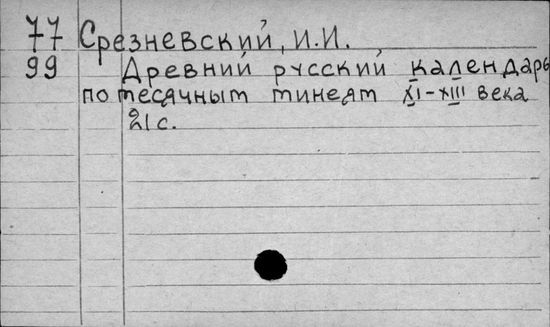 77 Срезневский, И.И.
99 Древний русский календарь
по месячным минеям XI-XIII века
21 с.